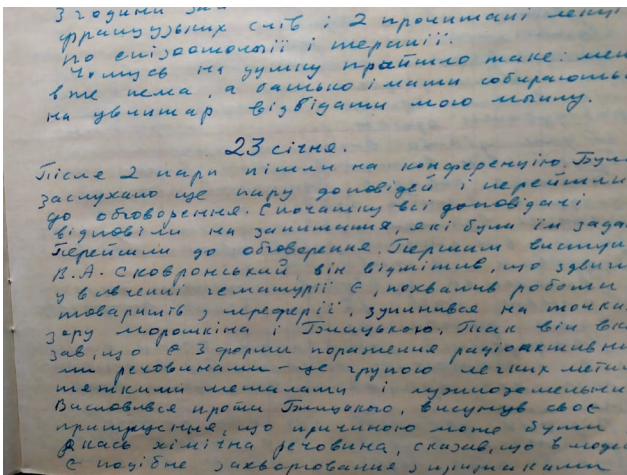 3 години
французьких слів і 2 прочитані лекції
по епізоотології і терапії.
Чомусь на думку прийшло таке: мен
вже нема, а батько і мати собираються
на цвинтар відвідати мою могилу.
23 січня.
Після 2 пари пішли на конференцію. Бул
заслухано ще пару доповідей і перейшли
до обговорення. Спочатку всі доповідачі
відповіли на запитання, які були їм зада
Перейшли до обговорення. Першим виступи
В.А. Сковронський, він відмітив, що здвиги
у вивченні гематурії є, похвалив роботи
товаришів з переферії, зупинився на точки
зору Морошкіна і Бницькою. Так він вка
зав, що є 3 форми пораження радіоактивни
ми речовинами – це групою легких метал
тяжкими металами і лужноземельни
Висловився проти Бницького, висунув своє
припущення, що причиною може бути
якась хімічна речовина, сказав, що в люде
є подібне захворювання з признаками